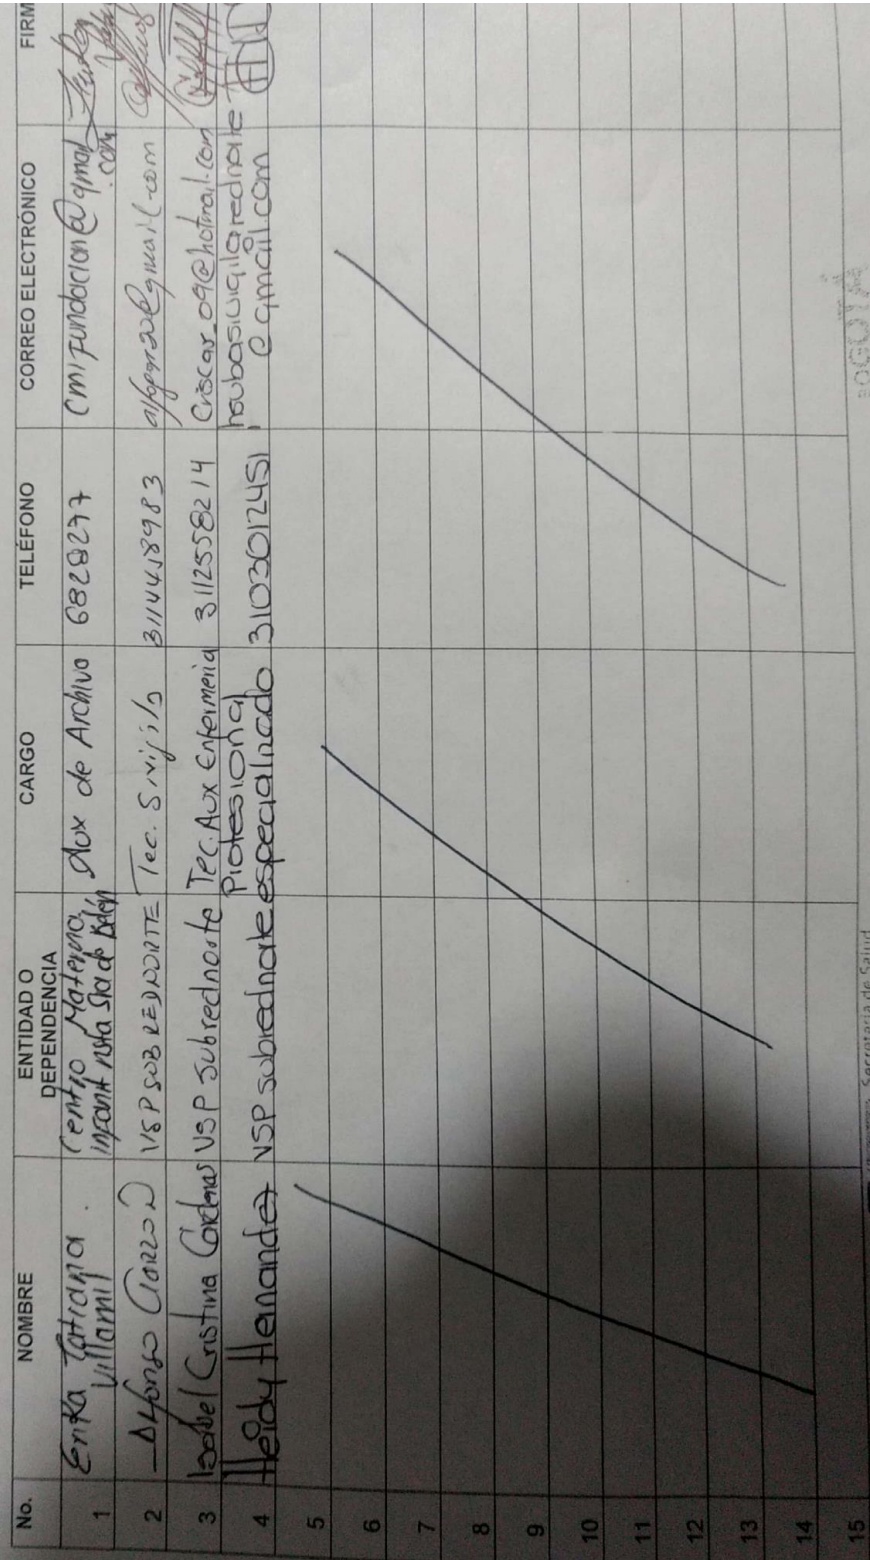 No. NOMBRE ENTIDAD O DEPENDENCIA CARGO TELÉFONO CORREO ELECTRÓNICO FIRM
1 Erika Tatiana Villamil Centro Materno infantil nstra Sra de Belén Aux de Archivo 6828277 cmifundacion@gmail.com
2 Alfonso Garzo D VSP SUB RED NORTE Tec. Sivigila 311448983
3 Isabel Cristina Cardenas VSP Subrednorte Tec. Aux Enfermeria 3112558214 Criscar_09@hotmail.com
4 Heidy Hernandez VSP subrednorte Profesional especializado 3103012451 @gmail.com
5
6
7
8
9
10
11
12
13
14
15
Secretaría de Salud
BOGOTÁ